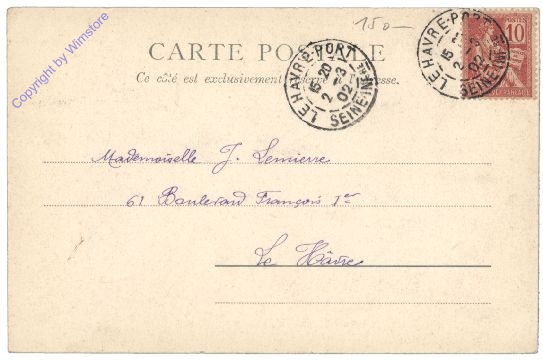 150-
CARTE POSTALE
Ce côté est exclusivement réservé à l'adresse.
LE HAVRE-PORT
15 20
2 -3
02
SEINE INFRE
LE HAVRE-PORT
15
2
02
SEINE INFRE
POSTES
10
Mademoiselle J. Lemierre
61 Boulevard François 1er
Le Hâvre
Copyright by Wimstore